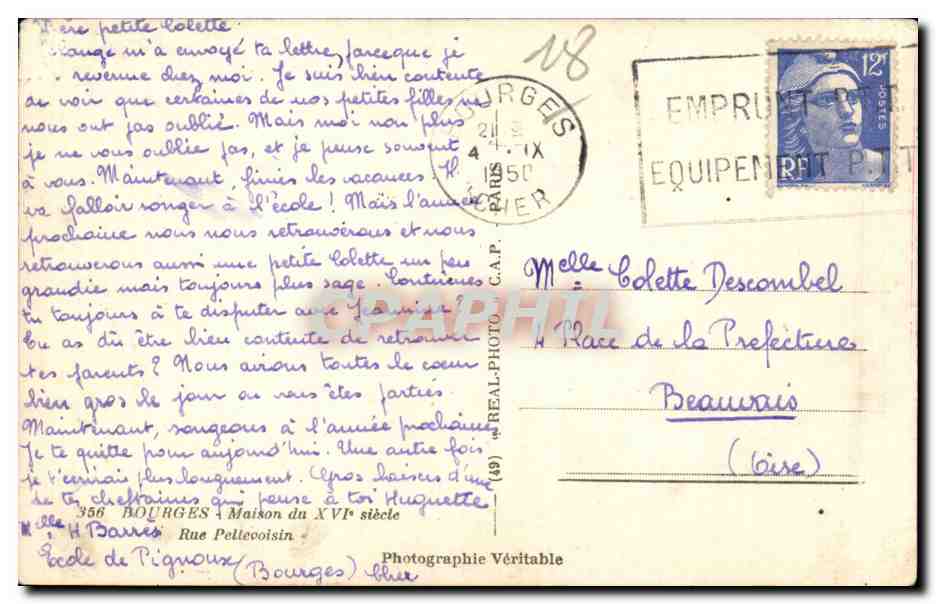 petite Colette
m'a envoyé ta lettre, parce que je
revenue chez moi. Je suis bien contente
de voir que certaines de nos petites filles ne
nous ont pas oublié. Mais moi non plus
je ne vous oublie pas, et je pense souvent
à vous. Maintenant, finies les vacances. Il
va falloir songer à l'école ! Mais l'année
prochaine nous nous retrouverons et nous
retrouverons aussi une petite Colette un peu
grandie mais toujours plus sage. Continues
tu toujours à te disputer avec Jeannine ?
Tu as dû être bien contente de retrouver
tes parents ? Nous avions toutes le coeur
bien gros le jour où vous êtes parties.
Maintenant, songeons à l'année prochaine.
Je te quitte pour aujourd'hui. Une autre fois
je t'écrirais plus longuement. Gros baisers d'une
de tes cheftaines qui pense à toi Huguette
356 BOURGES - Maison du XVIe siècle
Rue Pellevoisin
Melle H Barrès
Ecole de Pignoux (Bourges) Cher
Photographie Véritable
(49) REAL-PHOTO C.A.P. - PARIS
18
BOURGES
21 H
4 - IX
1950
CHER
EMPRUNT P.T.T
EQUIPEMENT P.T.T
12F
POSTES
RF
Melle Colette Descombel
4 Place de la Préfecture
Beauvais
(Oise)
CPAPHIL